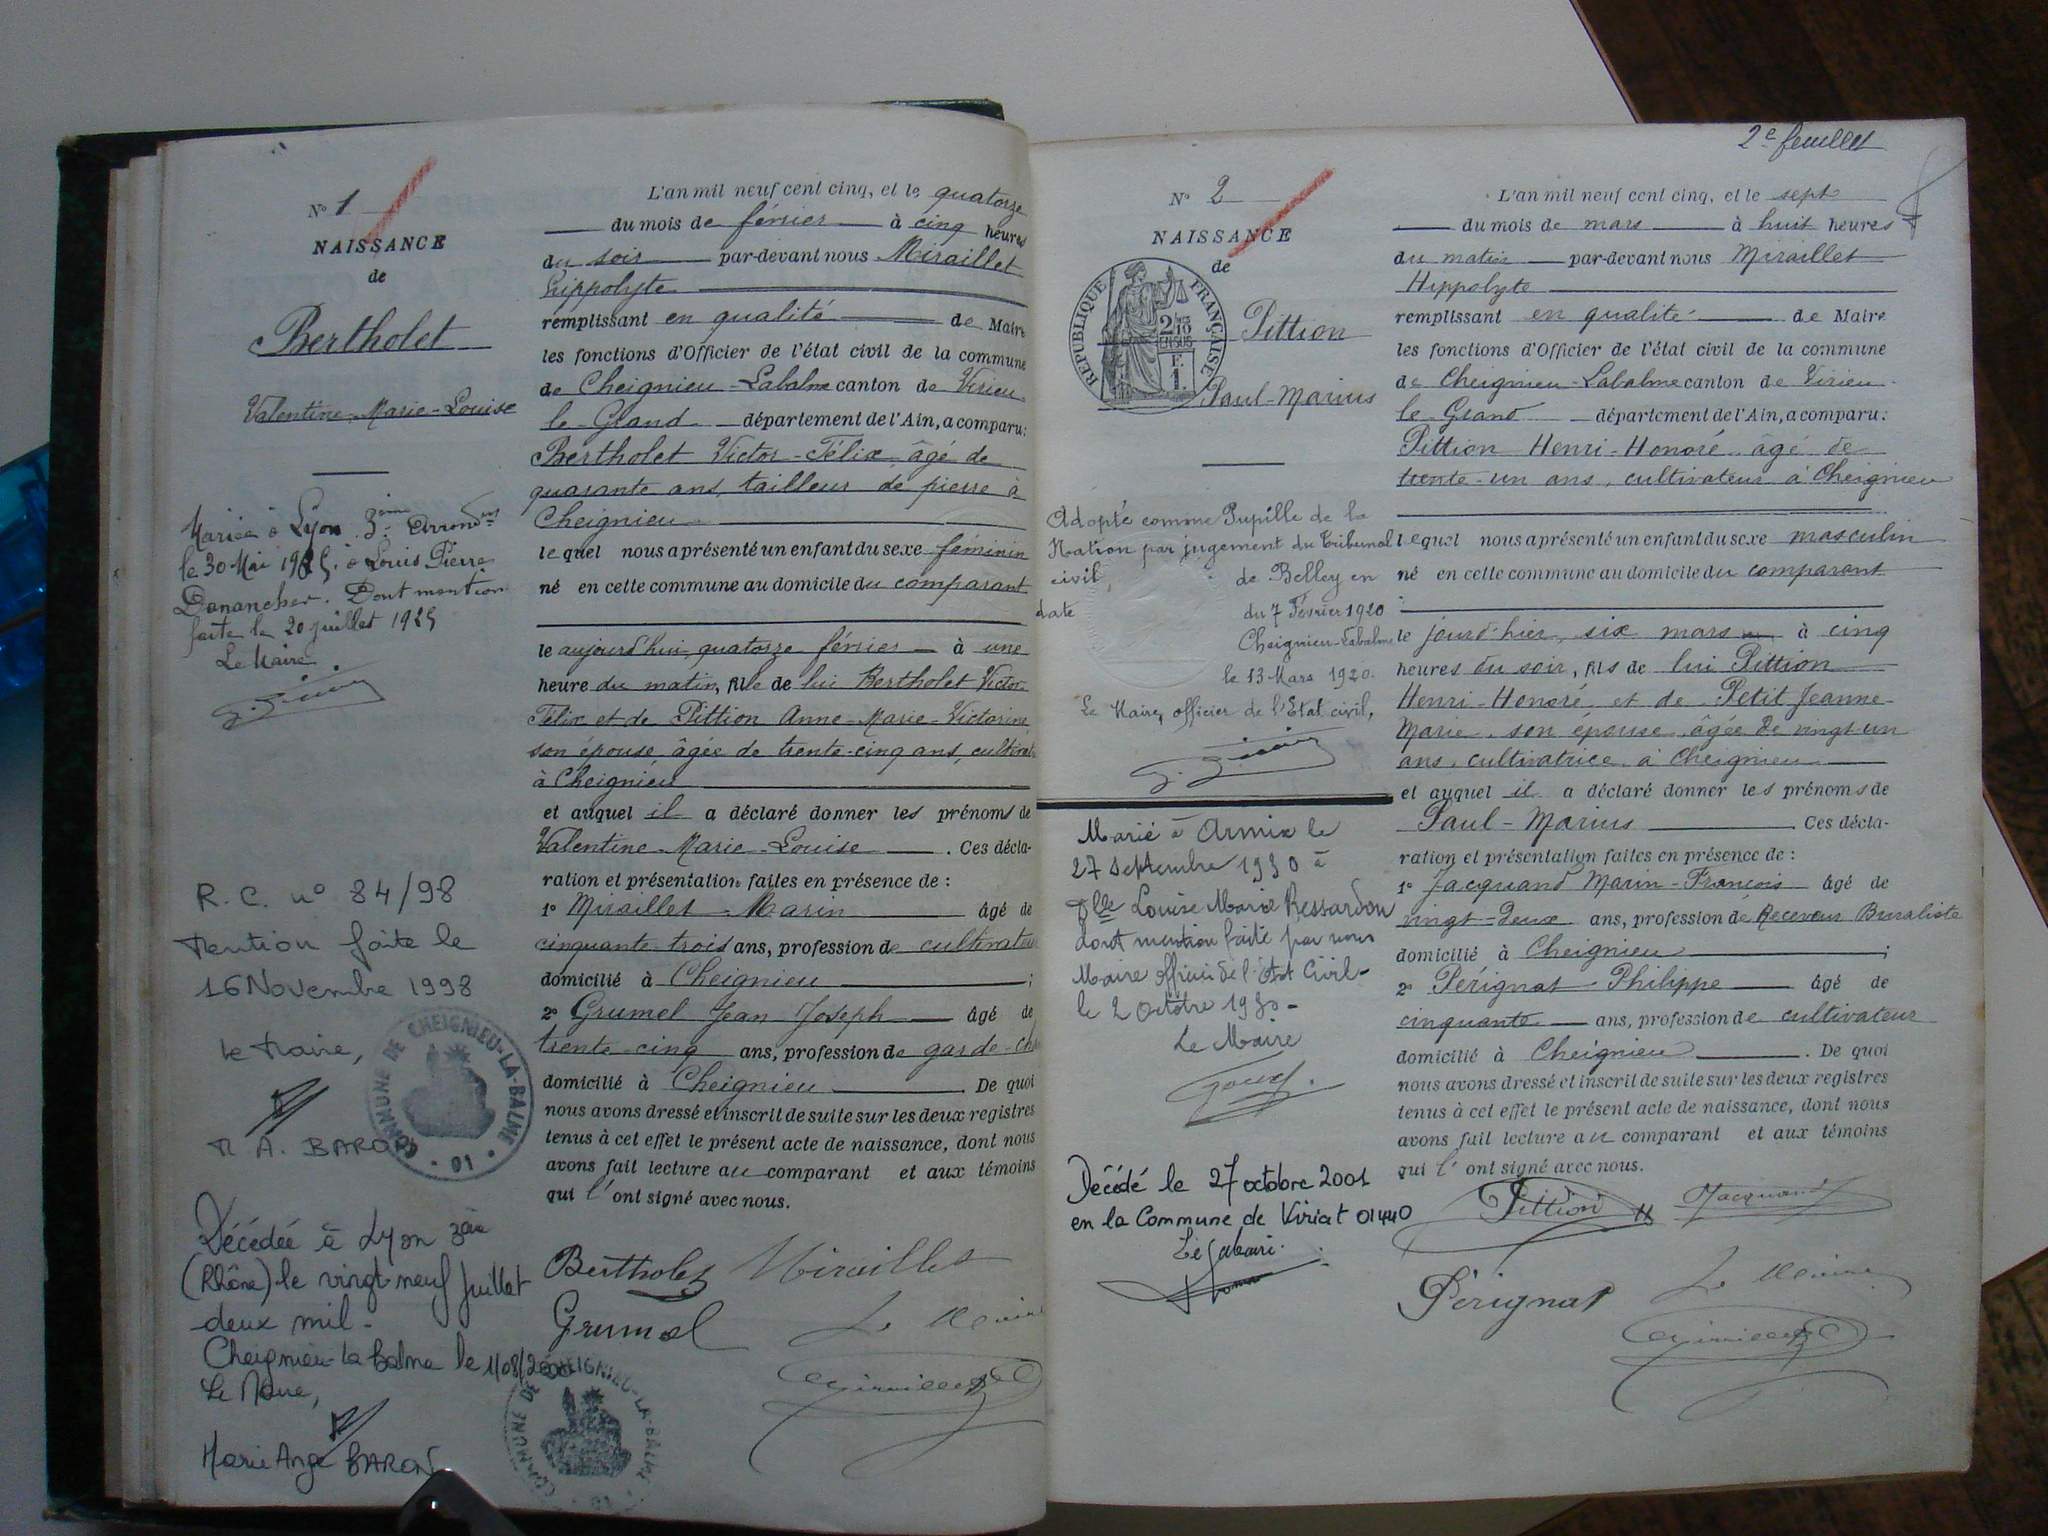 N° 1
NAISSANCE
de
Bertholet
Valentine-Marie-Louise
Mariée à Lyon 3ème Arrondt
le 30 Mai 1925 à Louis Pierre
Donancher. Dont mention
faite le 20 juillet 1925
Le Maire
R.C. n° 84/98
Mention faite le
16 Novembre 1998
Le Maire,
M A. BARON
COMMUNE DE CHEIGNIEU-LA-BALME
• 01 •
Décédée à Lyon 3ème
(Rhône) le vingt neuf juillet
deux mil -
Cheignieu-la Balme le 1/08/2000
Le Maire,
Marie Ange BARON
COMMUNE DE CHEIGNIEU-LA-BALME
L'an mil neuf cent cinq, et le quatorze
du mois de février à cinq heures
du soir par-devant nous Miraillet
Hippolyte
remplissant en qualité de Maire
les fonctions d'Officier de l'état civil de la commune
de Cheignieu-Labalme canton de Virieu
le-Grand département de l'Ain, a comparu:
Bertholet Victor-Félix âgé de
quarante ans, tailleur de pierre à
Cheignieu
lequel nous a présenté un enfant du sexe féminin
né en cette commune au domicile du comparant
le aujourd'hui, quatorze février à une
heure du matin, fille de lui Bertholet Victor
Félix et de Pittion Anne-Marie-Victorine
son épouse âgée de trente-cinq ans, cultivat
à Cheignieu
et auquel il a déclaré donner les prénoms de
Valentine-Marie-Louise . Ces décla-
ration et présentation faites en présence de :
1° Miraillet Marin âgé de
cinquante-trois ans, profession de cultivateur
domicilié à Cheignieu ;
2° Grumel Jean Joseph âgé de
trente-cinq ans, profession de garde-ch
domicilié à Cheignieu . De quoi
nous avons dressé et inscrit de suite sur les deux registres
tenus à cet effet le présent acte de naissance, dont nous
avons fait lecture au comparant et aux témoins
qui l'ont signé avec nous.
Bertholet Miraillet
Grumel Le Maire
Miraillet
2e feuillet
N° 2
NAISSANCE
de
RÉPUBLIQUE FRANÇAISE
2/10
EN SUS
F.
1.
Pittion
Paul-Marius
Adopté comme Pupille de la
Nation par jugement du Tribunal
civil, de Belley en
date du 7 Février 1920
Cheignieu-Labalme
le 13 Mars 1920.
Le Maire, officier de l'Etat civil,
Marié à Armix le
27 septembre 1930 à
Elle Louise Marie Ressardon
dont mention faite par nous
Maire officier de l'Etat Civil-
le 2 Octobre 1930-
Le Maire
Décédé le 27 octobre 2001
en la Commune de Viriat 01440
L'an mil neuf cent cinq, et le sept
du mois de mars à huit heures
du matin par-devant nous Miraillet
Hippolyte
remplissant en qualité de Maire
les fonctions d'Officier de l'état civil de la commune
de Cheignieu-Labalme canton de Virieu
le-Grand département de l'Ain, a comparu:
Pittion Henri-Honoré âgé de
trente-un ans, cultivateur à Cheignieu
lequel nous a présenté un enfant du sexe masculin
né en cette commune au domicile du comparant
le jourd'hier, six mars à cinq
heures du soir, fils de lui Pittion
Henri-Honoré et de Petit Jeanne-
Marie, son épouse âgée de vingt-un
ans, cultivatrice à Cheignieu
et auquel il a déclaré donner les prénoms de
Paul-Marius . Ces décla-
ration et présentation faites en présence de :
1° Jacquand Marin-François âgé de
vingt-deux ans, profession de Receveur Buraliste
domicilié à Cheignieu ;
2° Pérignat Philippe âgé de
cinquante ans, profession de cultivateur
domicilié à Cheignieu . De quoi
nous avons dressé et inscrit de suite sur les deux registres
tenus à cet effet le présent acte de naissance, dont nous
avons fait lecture au comparant et aux témoins
qui l'ont signé avec nous.
Pittion H Jacquand
Pérignat Le Maire
Miraillet